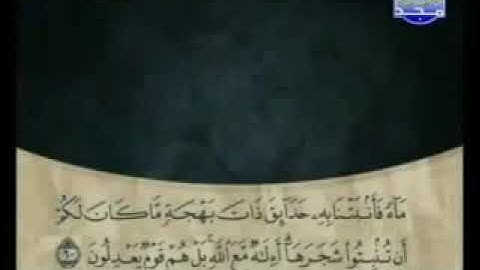 مجد
مَآءً فَأَنۢبَتْنَا بِهِۦ حَدَآئِقَ ذَاتَ بَهْجَةٍ مَّا كَانَ لَكُمْ
أَن تُنۢبِتُوا۟ شَجَرَهَآ ۗ أَءِلَٰهٌ مَّعَ ٱللَّهِ ۚ بَلْ هُمْ قَوْمٌ يَعْدِلُونَ ٦٠